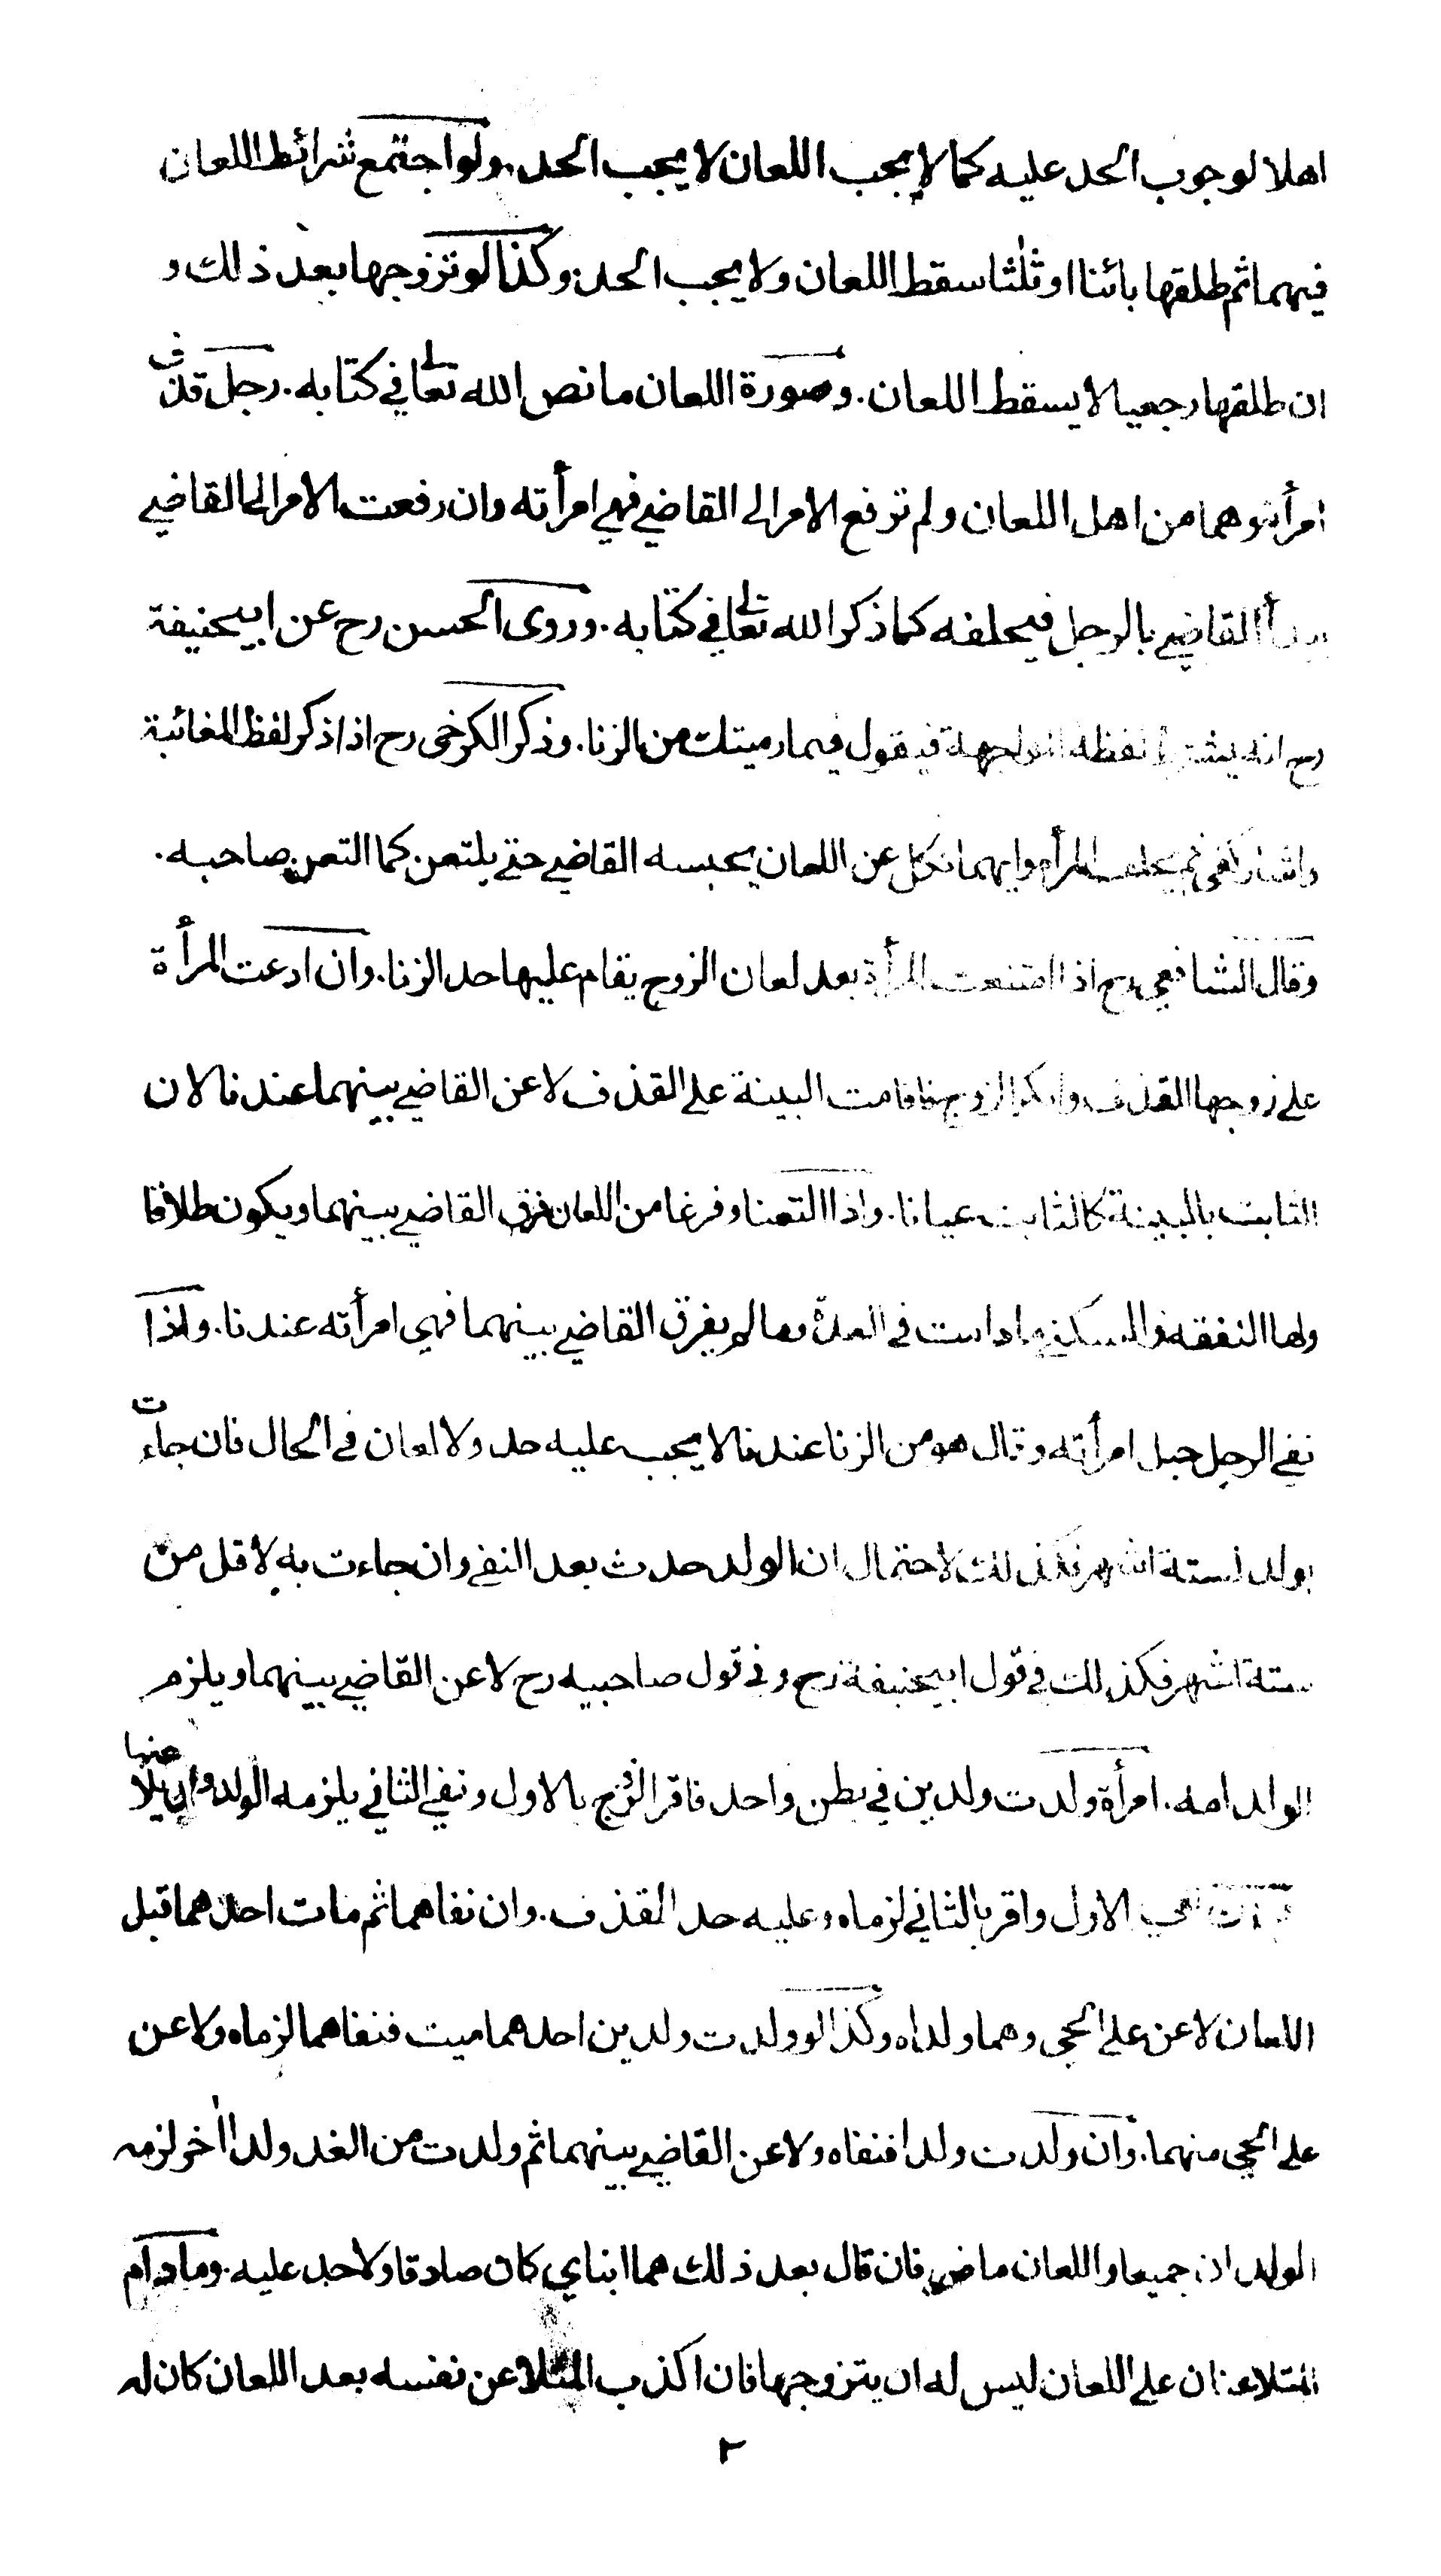 اهلا لوجوب الحد عليه كما لا يجب اللعان لا يجب الحد. ولو اجتمع شرائط اللعان
فيهما ثم طلقها بائنا او ثلثا سقط اللعان ولا يجب الحد. وكذا لو تزوجها بعد ذلك و
ان طلقها رجعيا لا يسقط اللعان. وصورة اللعان ما نص الله تعالى في كتابه. رجل قذف
امرأته وهما من اهل اللعان ولم ترفع الامر الى القاضي فهي امرأته وان رفعت الامر الى القاضي
يبدأ القاضي بالرجل فيحلفه كما ذكر الله تعالى في كتابه. وروى الحسن رح عن ابيحنيفة
رح انه يشترط لفظه المواجهة فيقول فيما رميتك من الزنا. وذكر الكرخي رح اذا ذكر لفظ المغائبة
واشار كفى ثم يحلف المرأة وايهما نكل عن اللعان يحبسه القاضي حتى يلتعن كما التعن صاحبه.
وقال الشافعي رح اذا امتنعت المرأة بعد لعان الزوج يقام عليها حد الزنا. وان ادعت المرأة
على زوجها القذف وانكر الزوج فاقامت البينة على القذف لاعن القاضي بينهما عندنا لان
الثابت بالبينة كالثابت عيانا. واذا التعنا وفرغا من اللعان فرق القاضي بينهما ويكون طلاقا
ولها النفقة والسكنى ما دامت في العدة وما لم يفرق القاضي بينهما فهي امرأته عندنا. واذا
نفى الرجل حبل امرأته وقال هو من الزنا عندنا لا يجب عليه حد ولا لعان في الحال فان جاءت
بولد لستة اشهر فكذلك لاحتمال ان الولد حدث بعد النفي وان جاءت به لاقل من
ستة اشهر فكذلك في قول ابيحنيفة رح وفي قول صاحبيه رح لاعن القاضي بينهما ويلزم
الولد امه. امرأة ولدت ولدين في بطن واحد فاقر الزوج بالاول ونفى الثاني يلزمه الولدان ويلاعنها
نفى الاول واقر بالثاني لزماه وعليه حد القذف. وان نفاهما ثم مات احدهما قبل
اللعان لاعن على الحي وهما ولداه وكذا لو ولدت ولدين احدهما ميت فنفاهما لزماه ولاعن
على الحي منهما. وان ولدت ولدا فنفاه ولاعن القاضي بينهما ثم ولدت من الغد ولدا اخر لزمه
الولدان جميعا واللعان ماض فان قال بعد ذلك هما ابناي كان صادقا ولا حد عليه. وما دام
المتلاعنان على اللعان ليس له ان يتزوجها فان اكذب المتلاعن نفسه بعد اللعان كان له
٢